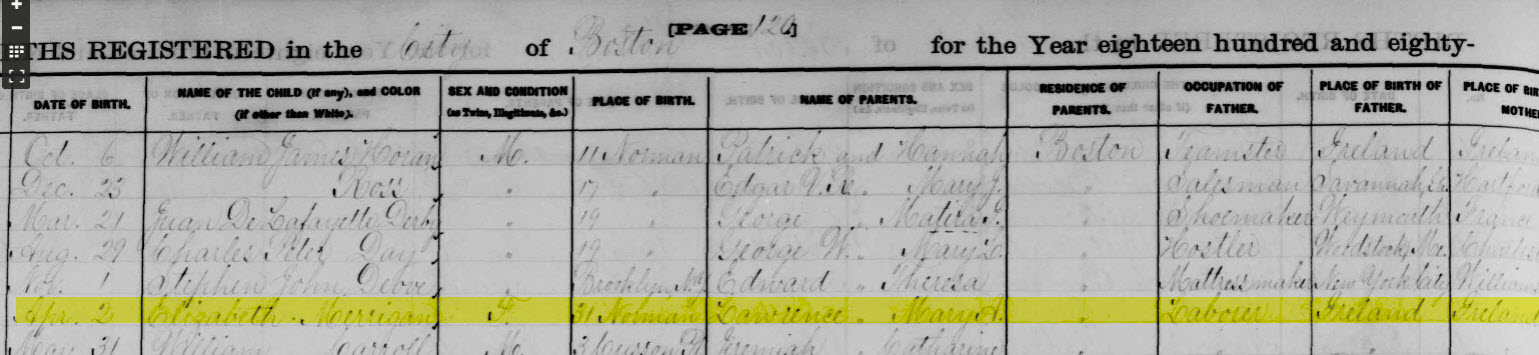 [PAGE 120]
THS REGISTERED in the City of Boston for the Year eighteen hundred and eighty-
DATE OF BIRTH. NAME OF THE CHILD (if any), and COLOR (if other than White). SEX AND CONDITION (as Twins, Illegitimate, &c.) PLACE OF BIRTH. NAME OF PARENTS. RESIDENCE OF PARENTS. OCCUPATION OF FATHER. PLACE OF BIRTH OF FATHER. PLACE OF BIR MOTHE
Oct. 6 William James Horan M. 11 Norman Patrick and Hannah Boston Teamster Ireland Irelan
Dec. 23 Ross " 17 " Edgar " Mary J. " Salesman Savannah, Ga. Hartfor
Mar. 21 Juan De Lafayette Derby " 19 " George " " Shoemaker Weymouth France
Aug. 29 Charles Day " 19 " George W. " Mary " Hostler Woodstock, Charles
Nov. 1 Stephen John " Brooklyn, N.Y. Edward " Theresa " Mattress maker New York City William
Apr. 2 Elizabeth Merrigan F. 31 Norman Lawrence " Mary A. " Laborer Ireland Ireland
May 31 William Carroll M. 3 Jeremiah " Catharine